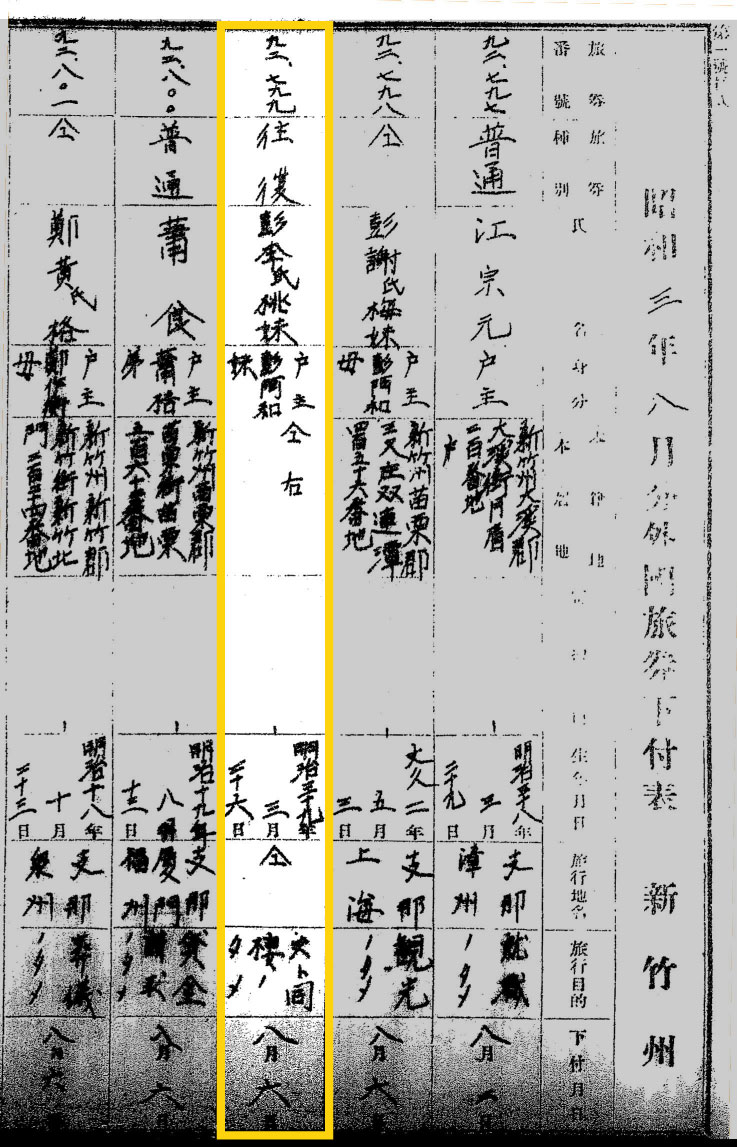 昭和三年八月分外国旅券下付表 新竹州
旅券番號
旅券種別
氏名
身分
本籍地
本居地
生年月日
旅行地名
旅行目的
下付月日
九二、七九七
普通
江宗元
戸主
新竹州大溪郡
大溪街門
二百番地
明治三十八年
三月
二十九日
支那
漳州
就職
ノタメ
八月
九二、七九八
仝
彭謝氏梅妹
戸主
彭阿和
母
新竹州苗栗郡
三叉庄双連潭
四百五十六番地
文久二年
五月
三日
支那
上海
観光
ノタメ
八月六日
九二、七九九
往復
彭李氏桃妹
戸主
彭阿和
妹
仝右
明治三十九年
三月
二十六日
仝
夫ト同
棲ノ
タメ
八月六日
九二、八〇〇
普通
蕭俊
戸主
蕭格
弟
新竹州苗栗郡
苗栗街苗栗
五百六十番地
明治十九年
八月
十三日
支那
廈門
福州
貸金
請求
ノタメ
八月六日
九二、八〇一
仝
鄭黃氏格
戸主
母
新竹州新竹郡
新竹街新竹北
門二百十四番地
明治十八年
十月
二十三日
支那
泉州
葬儀
ノタメ
八月六日